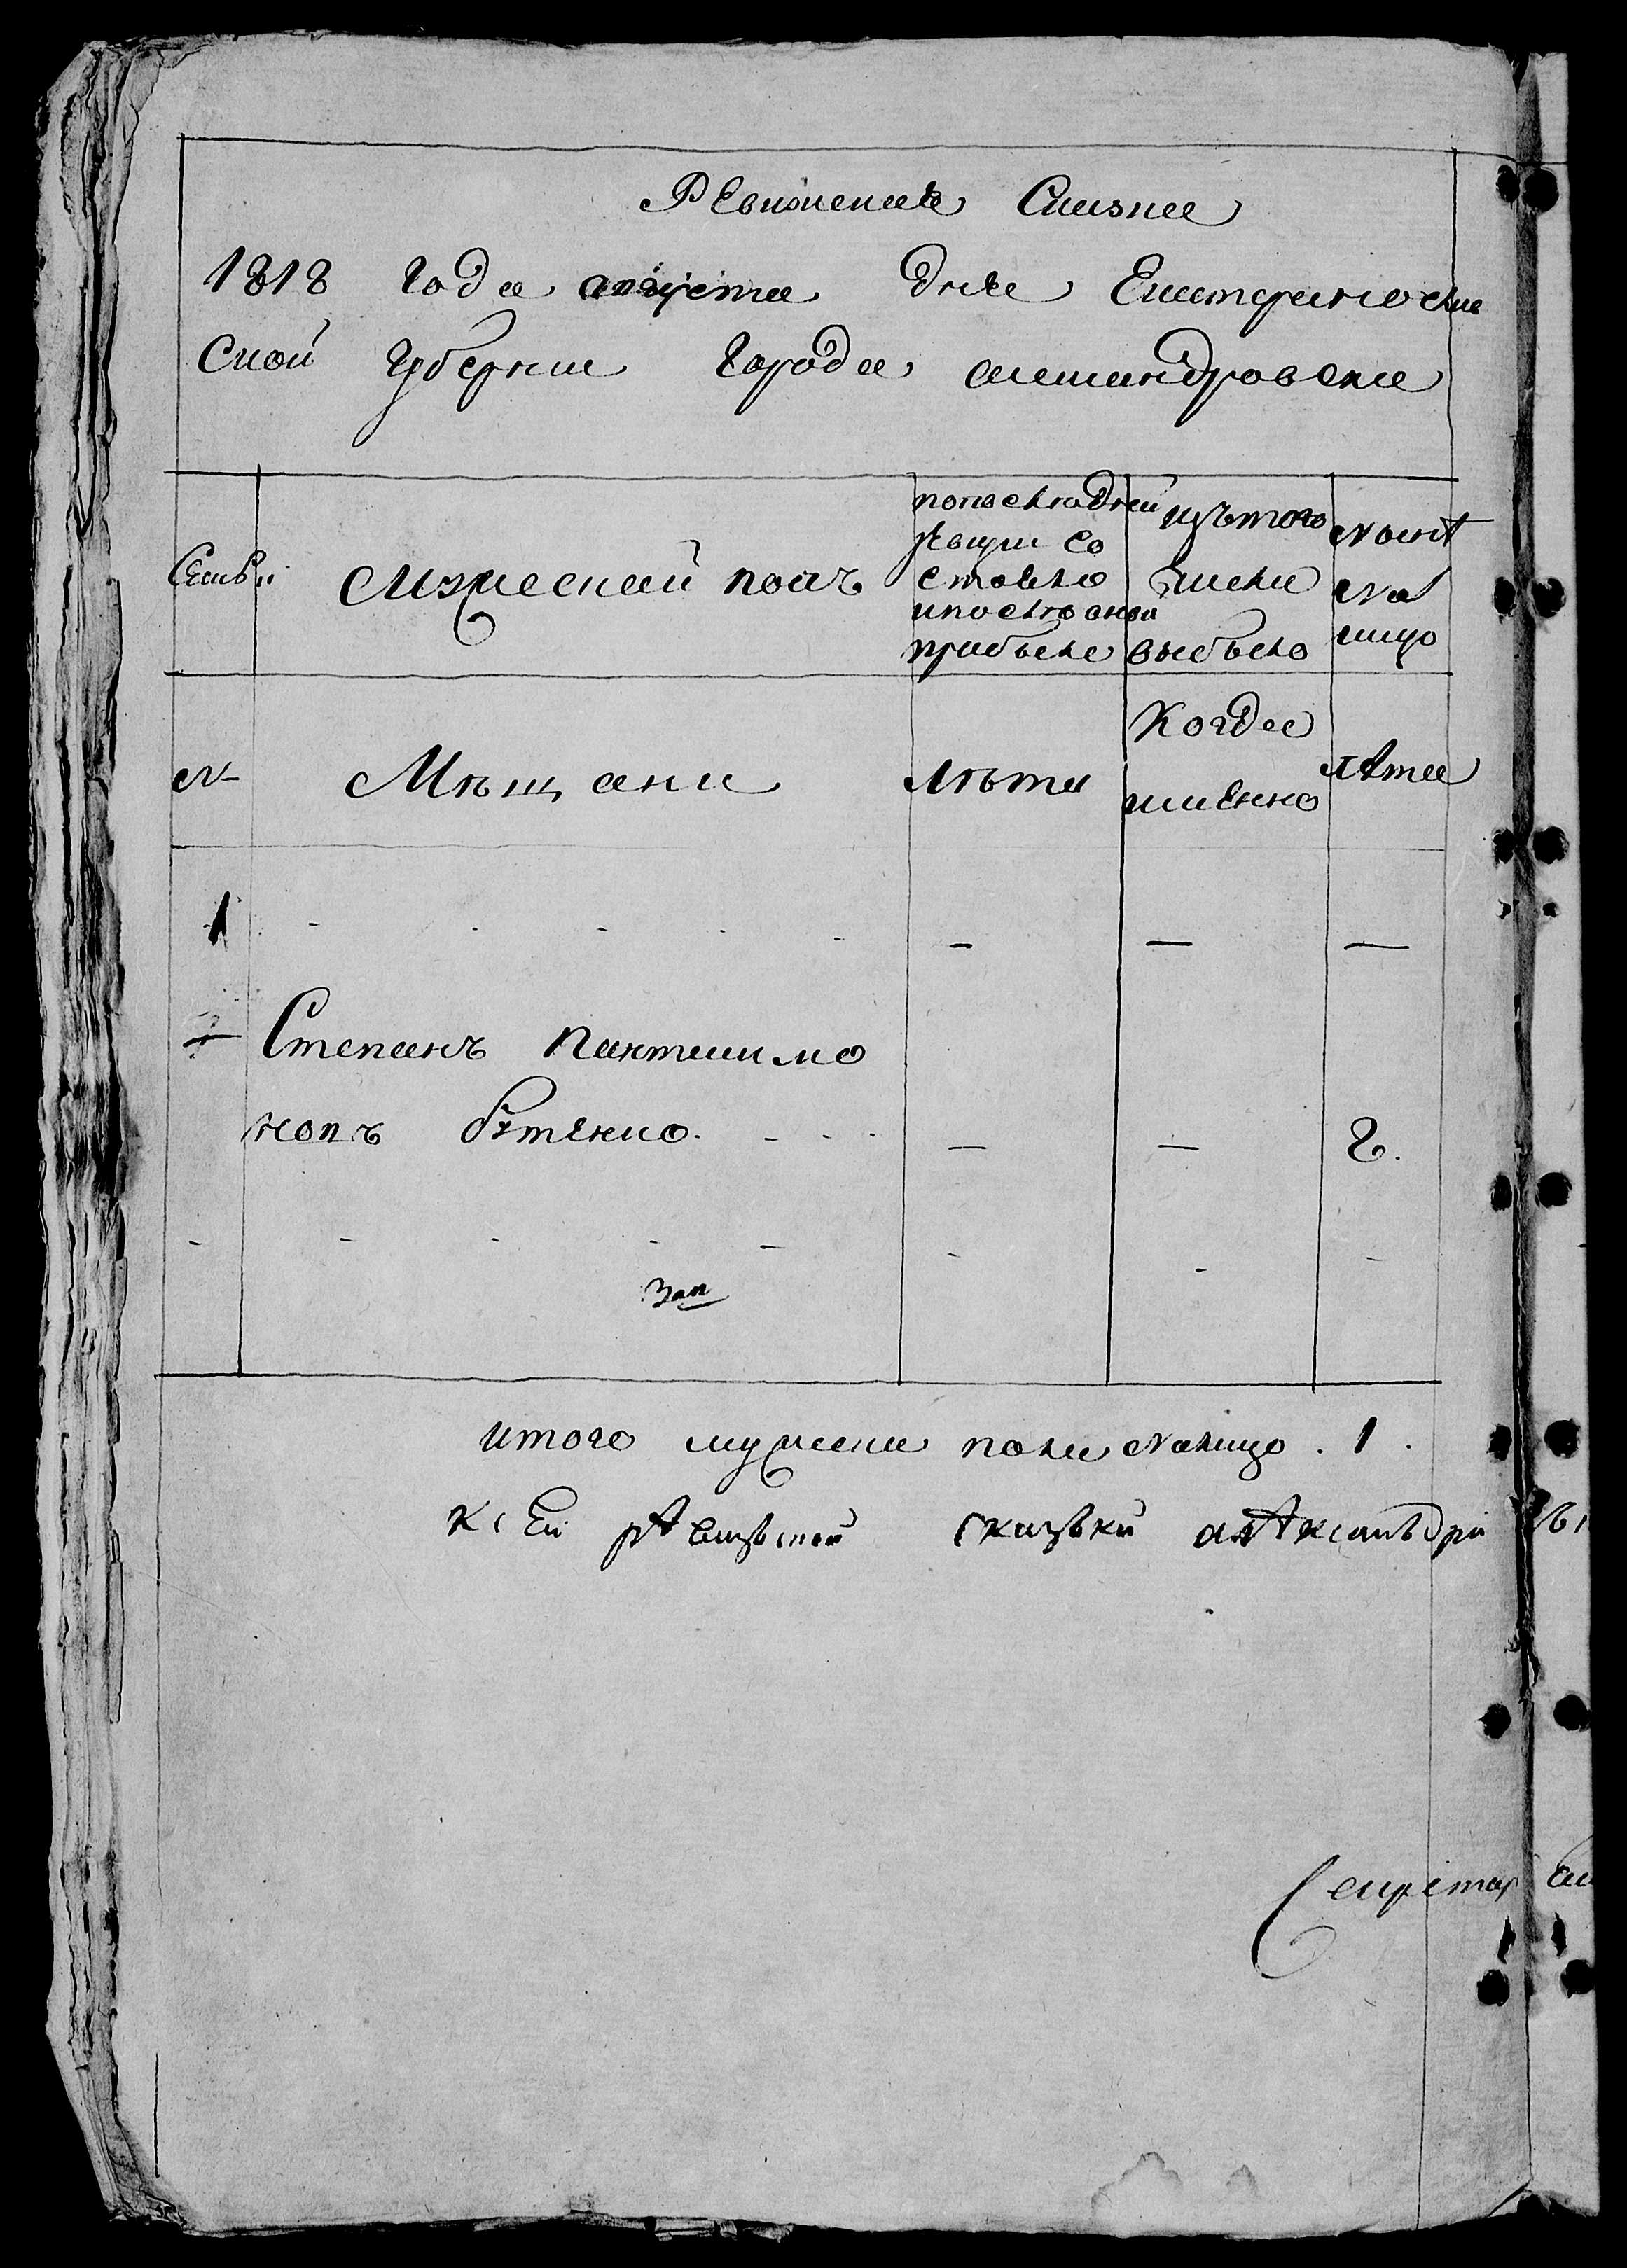 Ревижская Скаска
1818 Года августа дня Екатеринослав
Ской Губернии Города александровска
Семьи
мужеской полъ
попоследней
ревизии со
стояло
ипослѣ оной
прибыло
изътого
числа
выбыло
нынѣ
На
лицо
№
Мѣщане
Лѣта
Когда
имянно
лѣта
1
Степанъ Пантилимо
новъ Бутенко
2.
Зап
итого мужска пола Налицо. 1.
ксей рѣвизской сказъки алѣксанъдро вы
Секретар